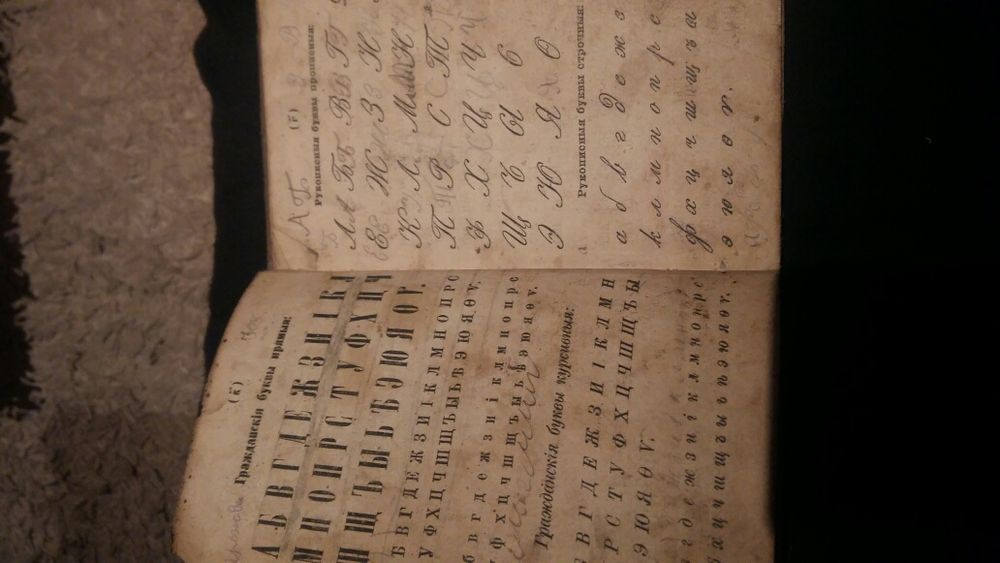 (к҃)
Гражданскія буквы прямыя:
А Б В Г Д Е Ж З И І К Л
М Н О П Р С Т У Ф Х Ц Ч
Ш Щ Ъ Ы Ь Ѣ Э Ю Я Ѳ Ѵ.
Б В Г Д Е Ж З И І К Л М Н О П Р С
У Ф Х Ц Ч Ш Щ Ъ Ы Ь Ѣ Э Ю Я Ѳ Ѵ.
б в г д е ж з и і к л м н о п р с
у ф х ц ч ш щ ъ ы ь ѣ э ю я ѳ ѵ.
Гражда́нскія буквы курсивныя:
Б В Г Д Е Ж З И І К Л М Н
Р С Т У Ф Х Ц Ч Ш Щ Ъ Ы
Э Ю Я Ѳ Ѵ.
г д е ж з и і к л м н о п р с
х ц ч ш щ ъ ы ь ѣ э ю я ѳ ѵ.
А Б В
Рукописныя буквы прописныя:
А Б В Г
Е Ж З Н
К Л М Н
П Р С Т
Ф Х Ц Ч
Щ Ъ Ы Ь
Э Ю Я Ѳ
Рукописныя буквы строчныя:
а б в г д е ж з
к л м н о п р с
ф х ц ч ш щ ъ
э ю я ѳ ѵ.